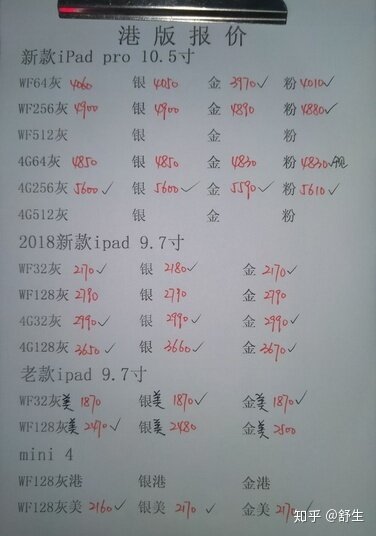 港 版 报 价
新款iPad pro 10.5寸
WF64灰 4060 银 4050 金 3970✓ 粉 4010✓
WF256灰 4900 银 4900 金 4890 粉 4880✓
WF512灰 银 金 粉
4G64灰 4850 银 4850 金 4830 粉 4830✓
4G256灰 5600✓ 银 5600✓ 金 5590✓ 粉 5610✓
4G512灰 银 金 粉
2018新款ipad 9.7寸
WF32灰 2170✓ 银 2180✓ 金 2170✓
WF128灰 2790 银 2790 金 2790
4G32灰 2990✓ 银 2990✓ 金 2990✓
4G128灰 3650✓ 银 3660✓ 金 3670✓
老款ipad 9.7寸
WF32灰美 1870 银美 1870✓ 金美 1870✓
WF128灰美 2470✓ 银美 2480 金美 2500
mini 4
WF128灰港 银港 金港
WF128灰美 2160✓ 银美 2170✓ 金美 2170✓
知乎 @舒生